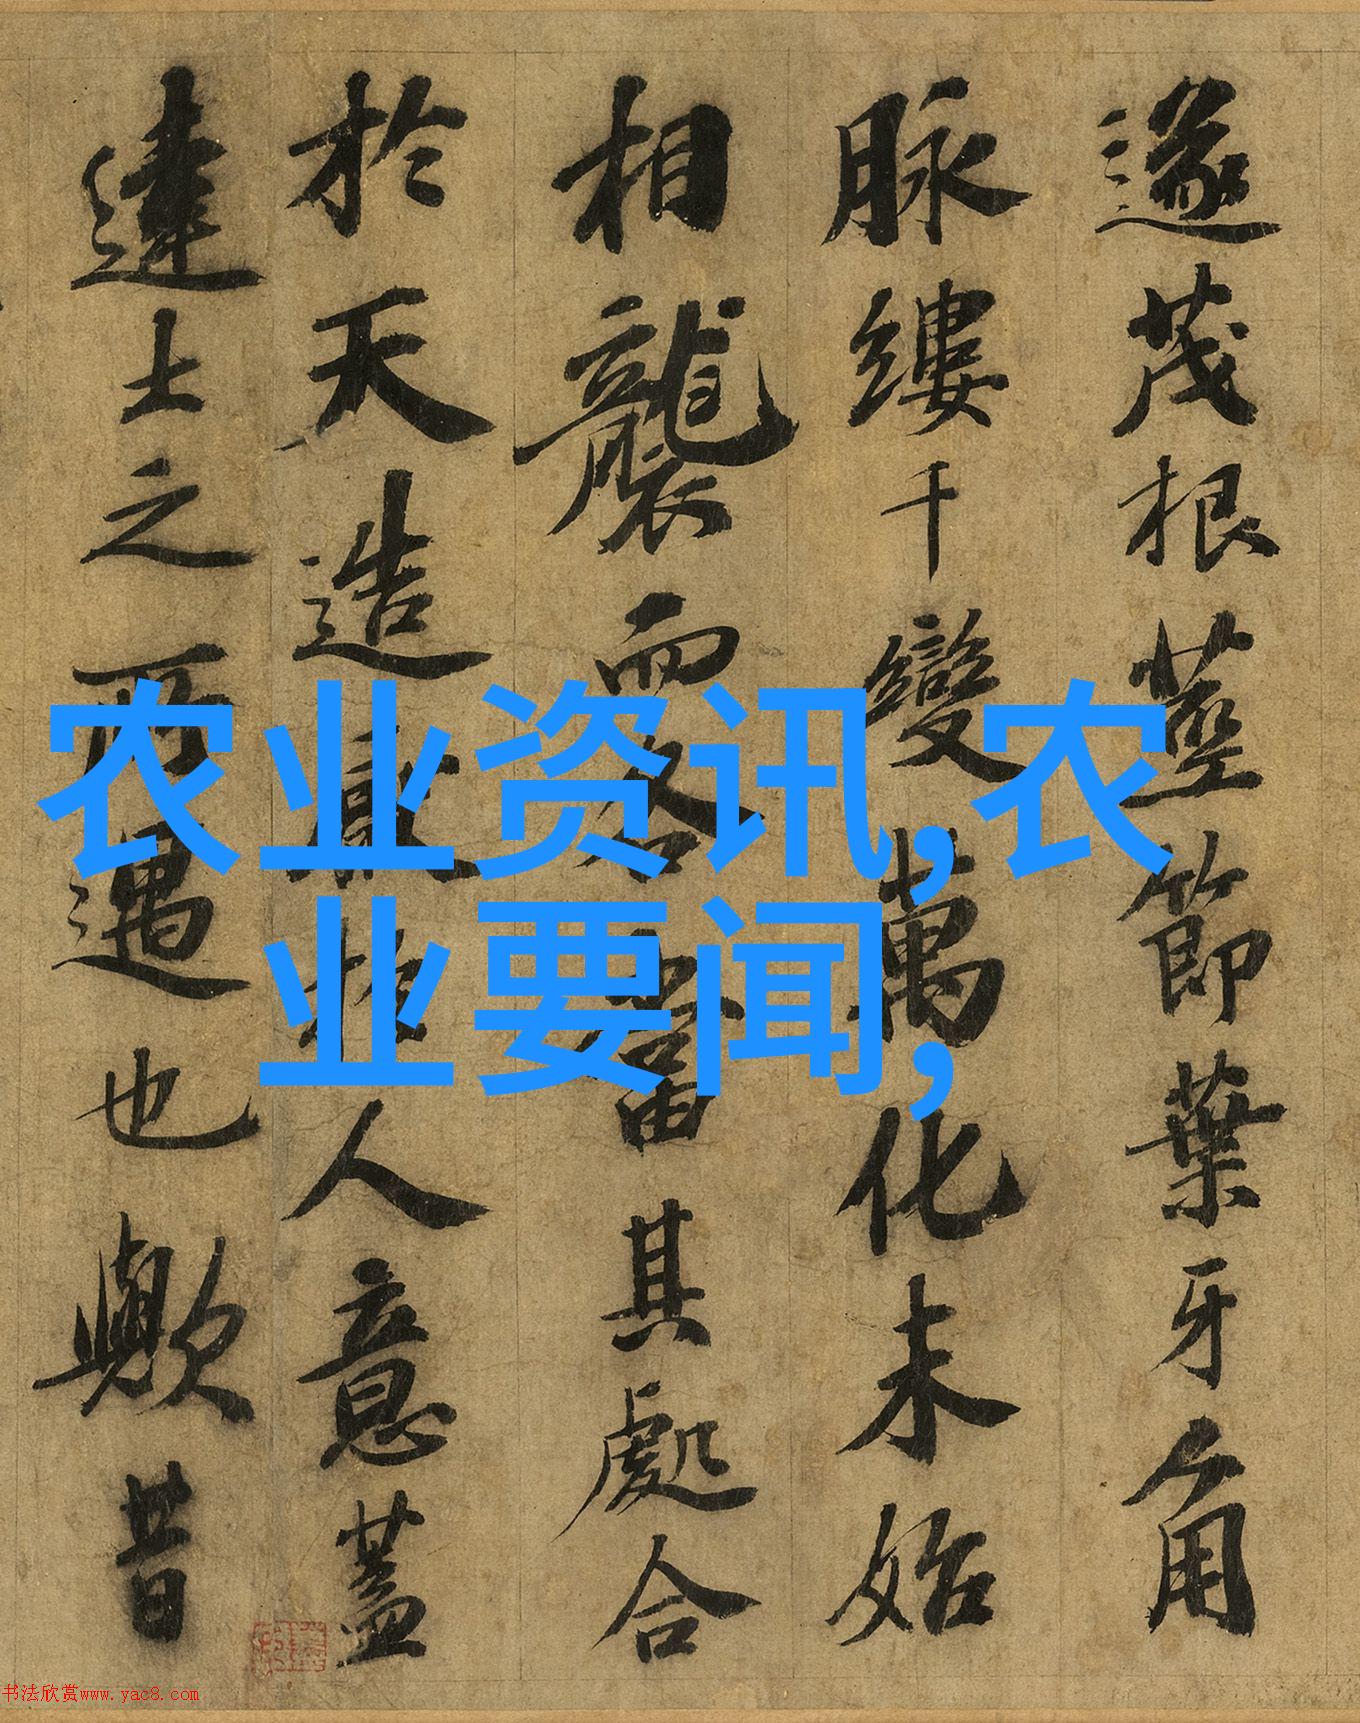 遂茂根莖節葉牙角
脉縷千變萬化未始
相襲而各當其處合
於天造厭於人意蓋
達士之所遇也歟昔
农业资讯,农
业要闻,
书法欣赏www.yac8.com